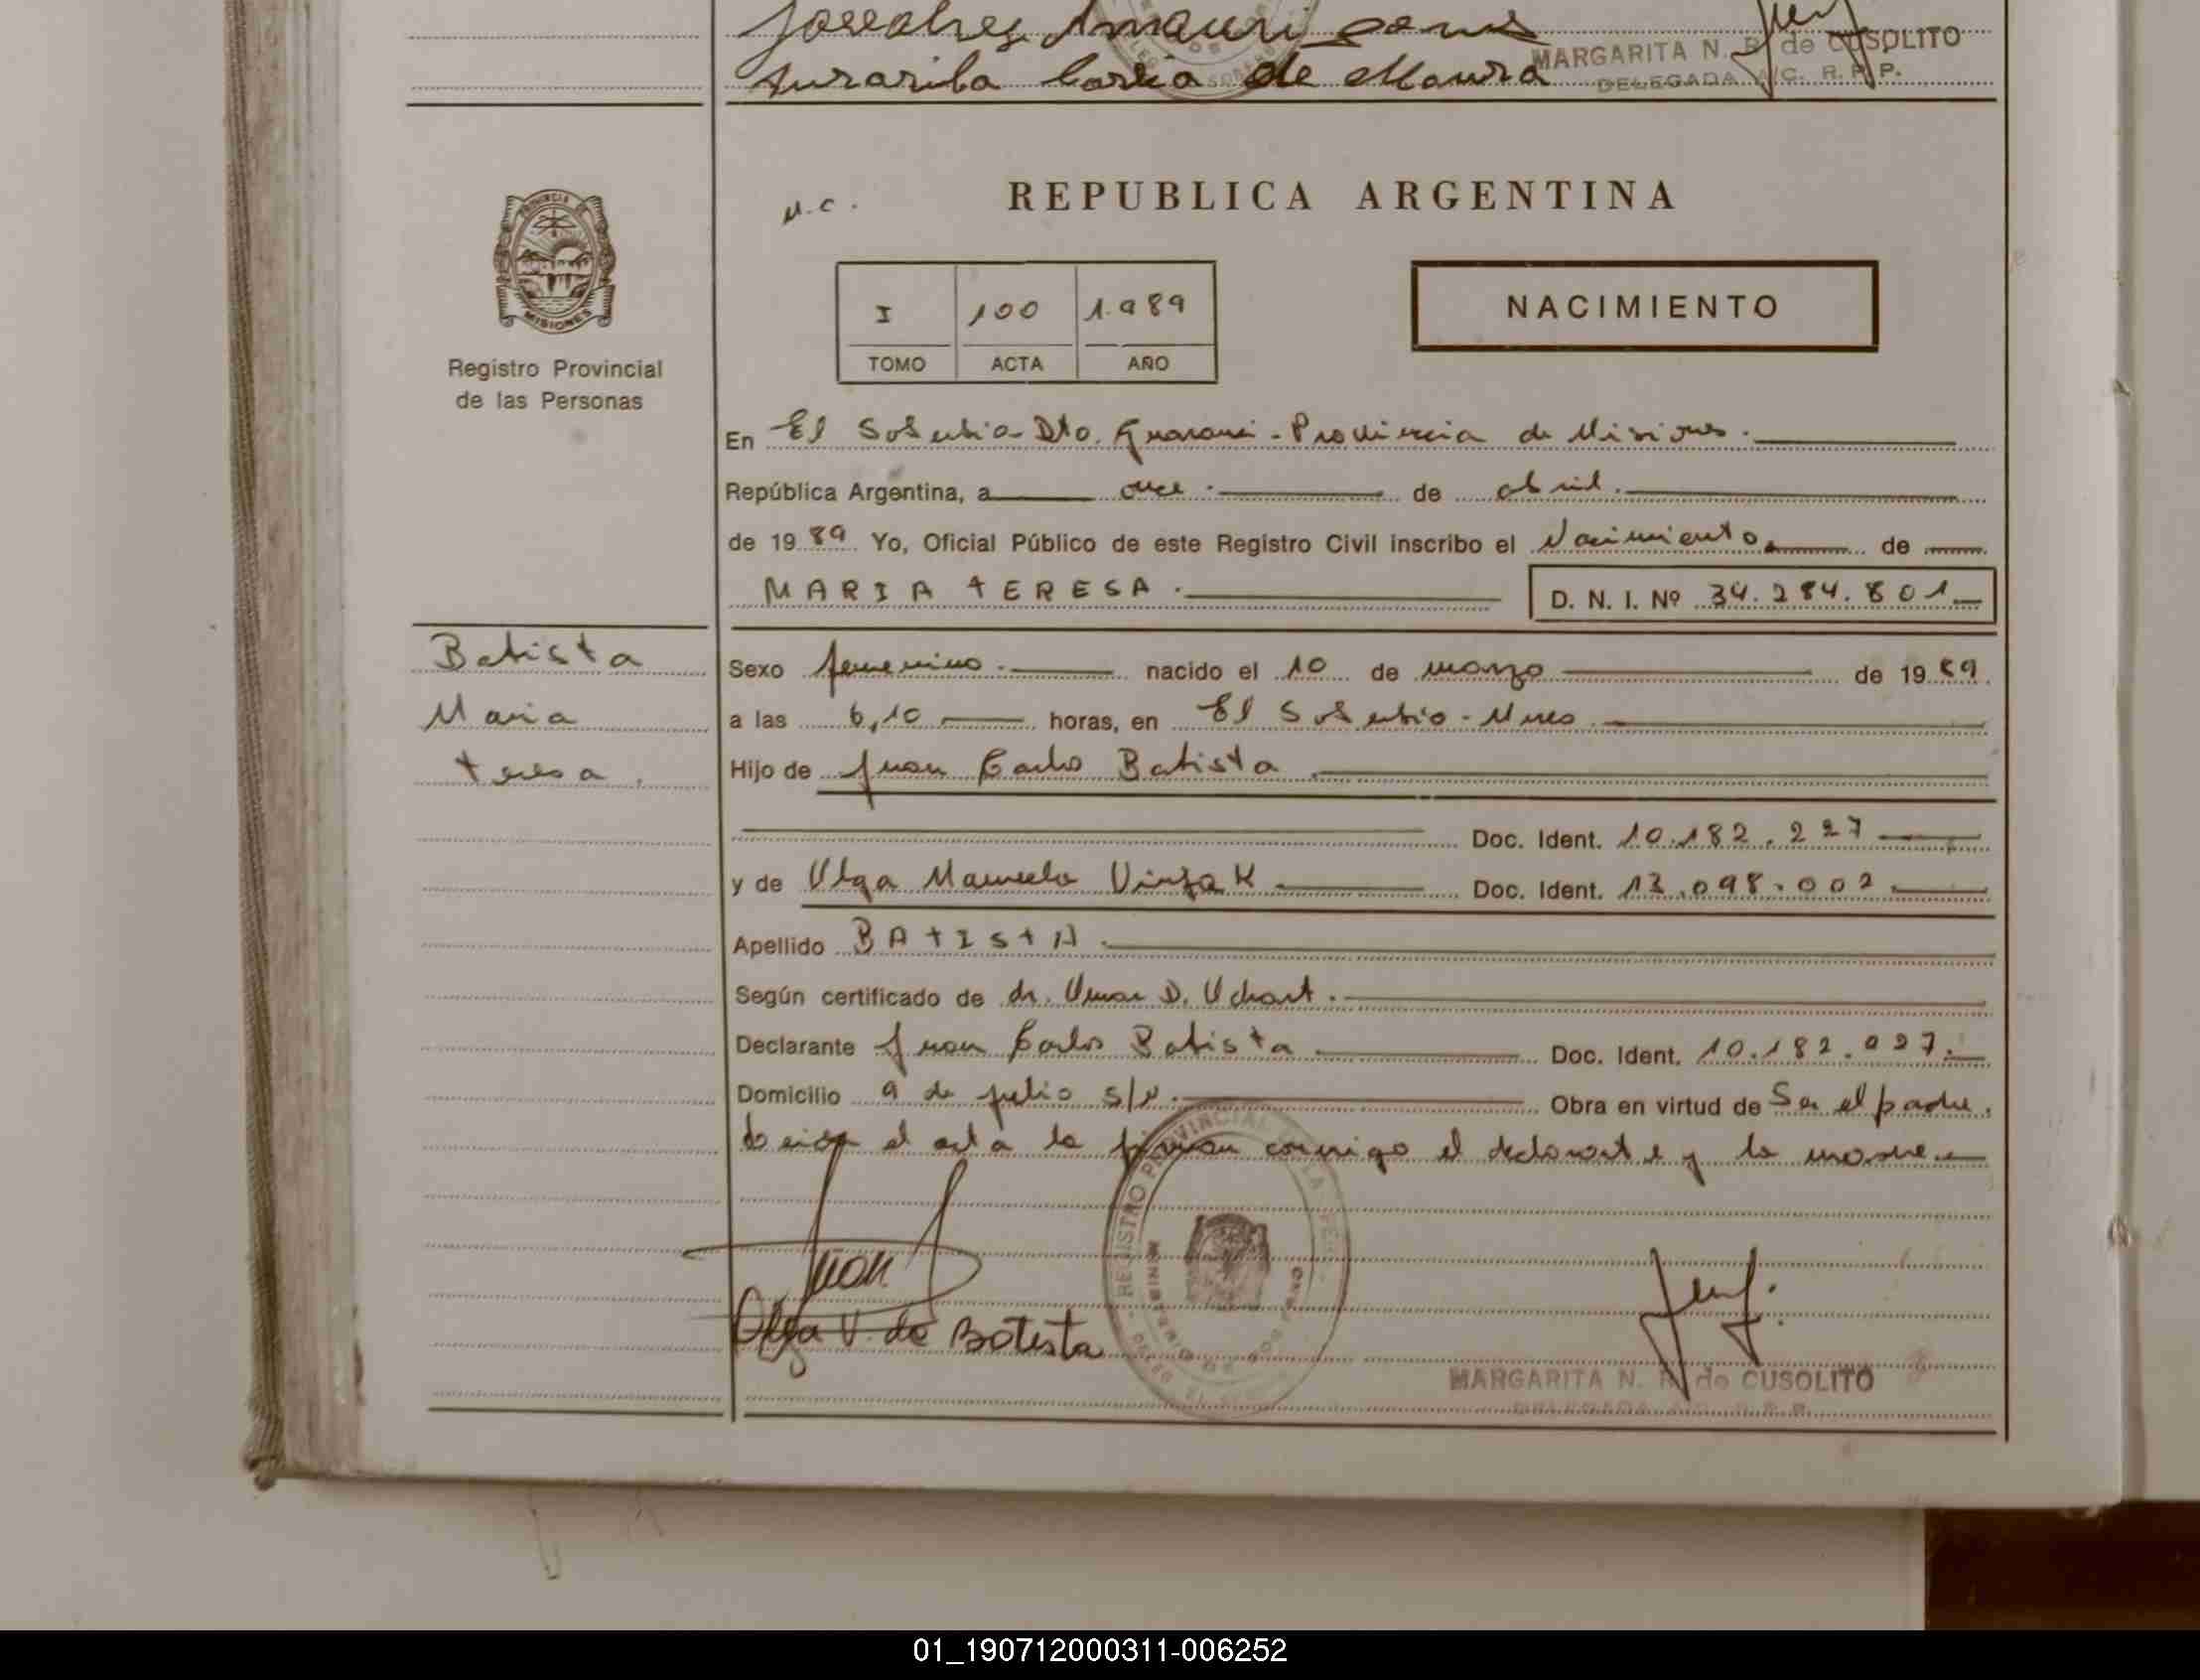 Amauri
de Maura
MARGARITA N. R. de CUSOLITO
DELEGADA A/C. R. P. P.
PROVINCIA DE
MISIONES
Registro Provincial
de las Personas
M.C.
REPUBLICA ARGENTINA
I 100 1.989
TOMO ACTA AÑO
NACIMIENTO
En El Soberbio - Dto. Guaraní - Provincia de Misiones.
República Argentina, a once. de abril.
de 1989 Yo, Oficial Público de este Registro Civil inscribo el Nacimiento de
MARIA TERESA.
D. N. I. Nº 34.284.801
Batista
Maria
teresa.
Sexo femenino. nacido el 10 de marzo de 1989.
a las 6,10 horas, en El Soberbio - Mnes.
Hijo de Juan Carlos Batista
Doc. Ident. 10.182.227
y de Olga Marcela Doc. Ident. 13.098.002
Apellido BATISTA.
Según certificado de dr. Omar D.
Declarante Juan Carlos Batista Doc. Ident. 10.182.227.
Domicilio 9 de julio s/n. Obra en virtud de Ser el padre.
leida el acta la firman conmigo el declarante y la madre.
Juan
Olga V. de Batista
REGISTRO PROVINCIAL DE LAS PER
MARGARITA N. R. de CUSOLITO
DELEGADA A/C. R. P. P.
01_190712000311-006252